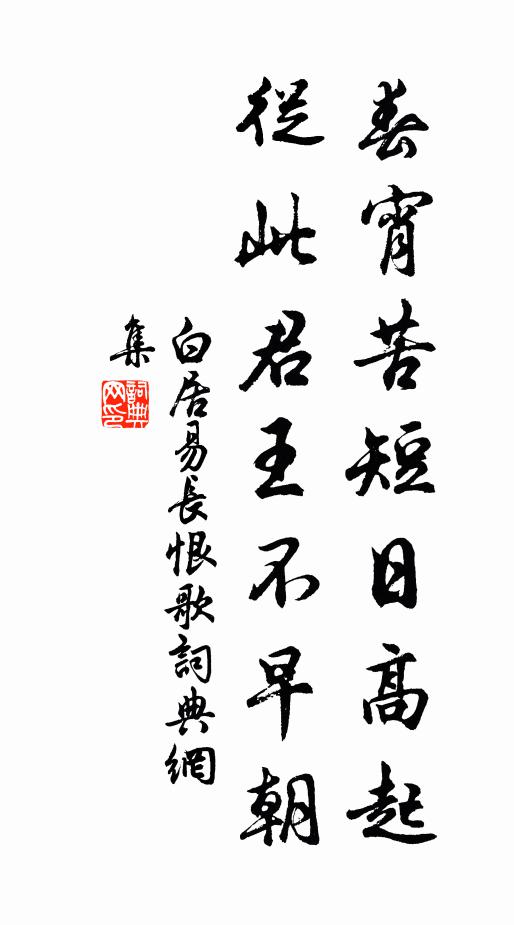 春宵苦短日高起
從此君王不早朝
白居易長恨歌詞典網
集
詞典網印